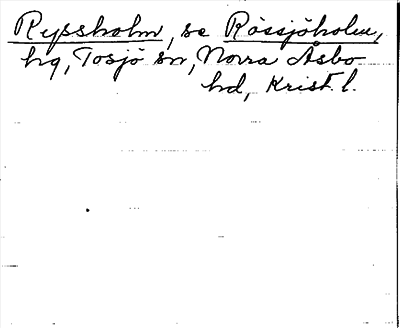 Ryssholm, se Rössjöholm,
hg, Tosjö sn, Norra Åsbo
hd, Krist. l.